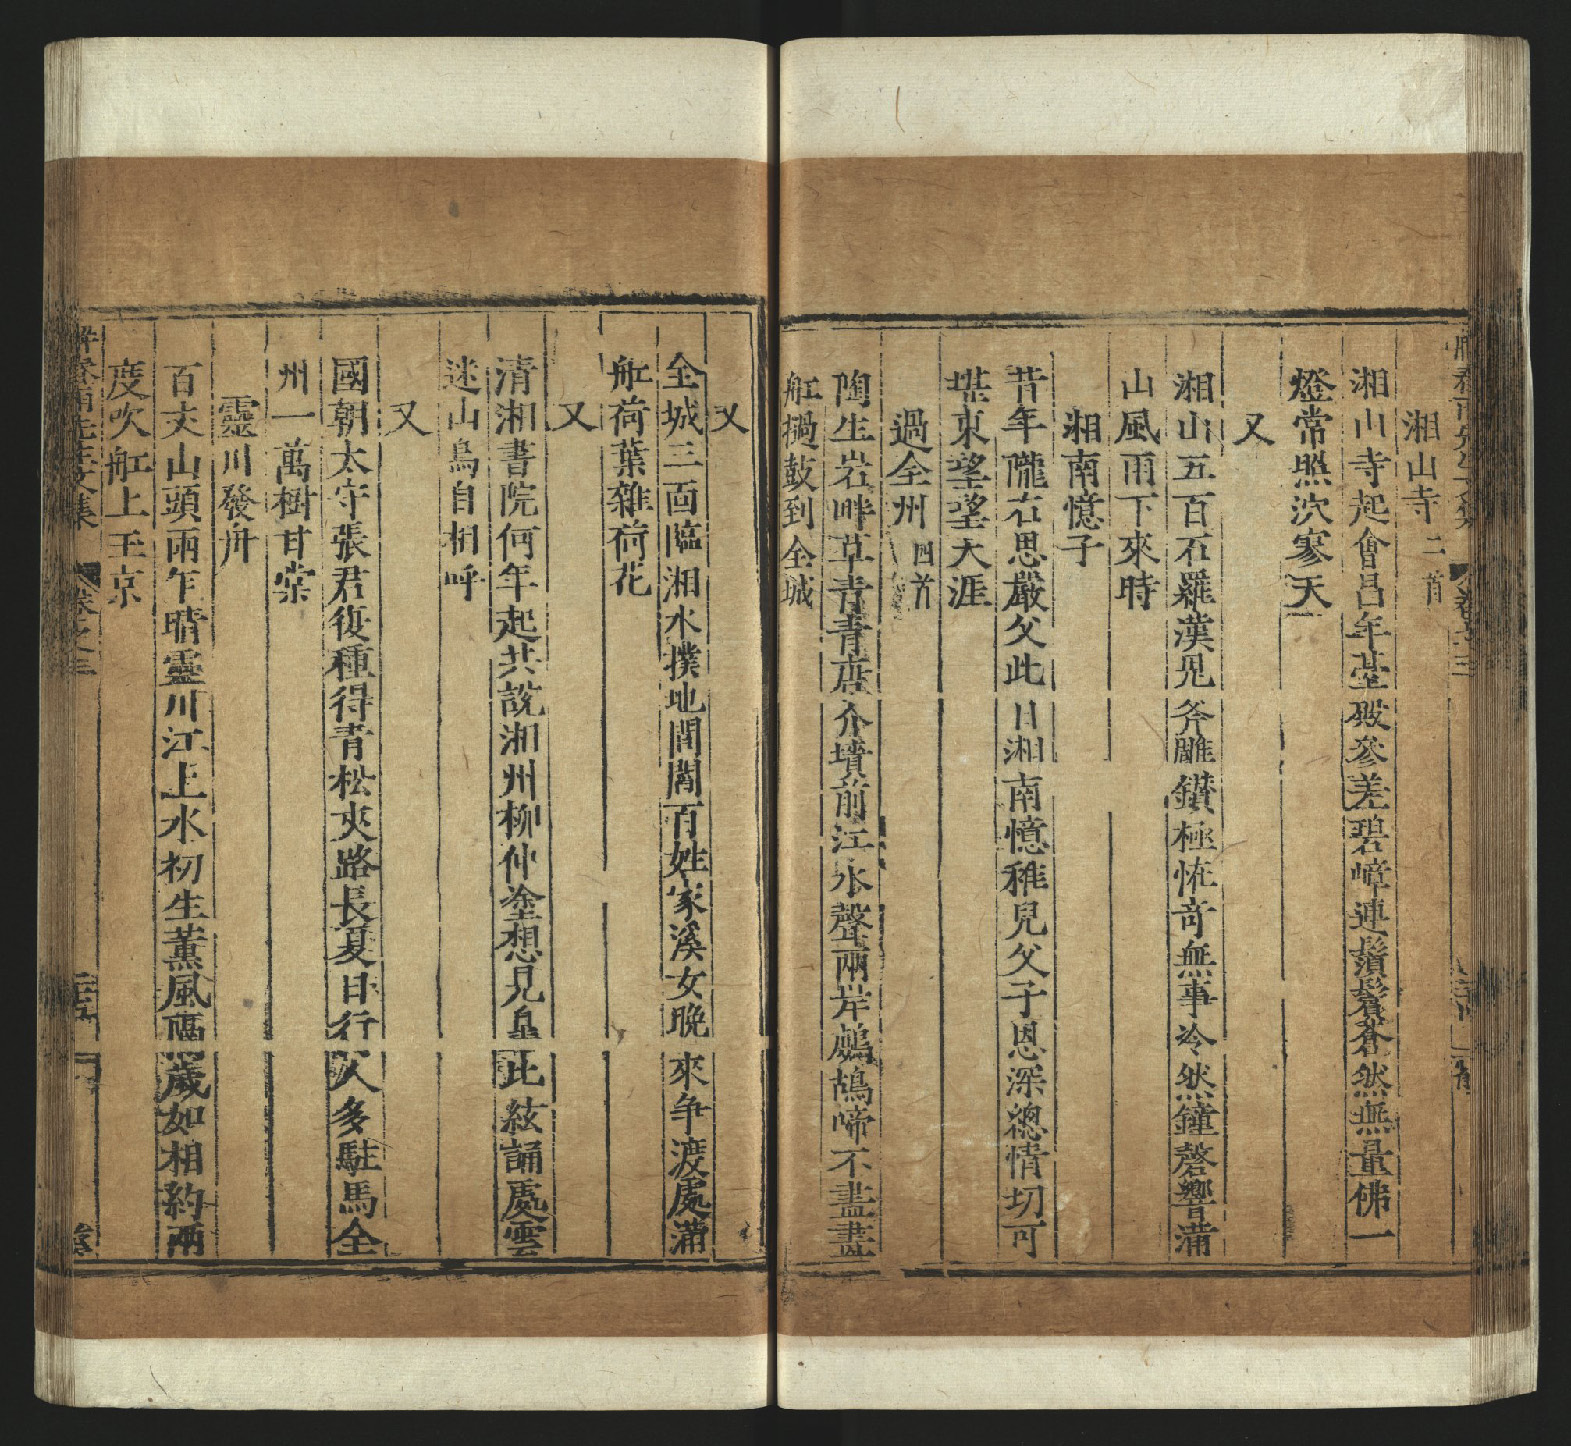 湘山寺二首
湘山寺起會昌年臺殿參差碧嶂連鬚鬢蒼然無量佛一
燈常照次寥天
又
湘山五百石羅漢鬼斧雕鑽極怪奇無事冷然鐘磬響滿
山風雨下來時
湘南憶子
昔年隴右思嚴父此日湘南憶稚兒父子恩深總情切可
堪東望望天涯
過全州四首
陶生岩畔草青青唐介墳前江水聲兩岸鷓鴣啼不盡畫
舡撾鼓到全城
又
全城三面臨湘水撲地閭閻百姓家溪女晚來争渡處滿
舡荷葉雜荷花
又
清湘書院何年起共說湘州柳仲塗想見皐比絃誦處雲
迷山鳥自相呼
又
國朝太守張君復種得青松夾路長夏日行人多駐馬全
州一萬樹甘棠
靈川發舟
百丈山頭雨乍晴靈川江上水初生薰風隔歲如相約兩
度吹舡上玉京
卷之三